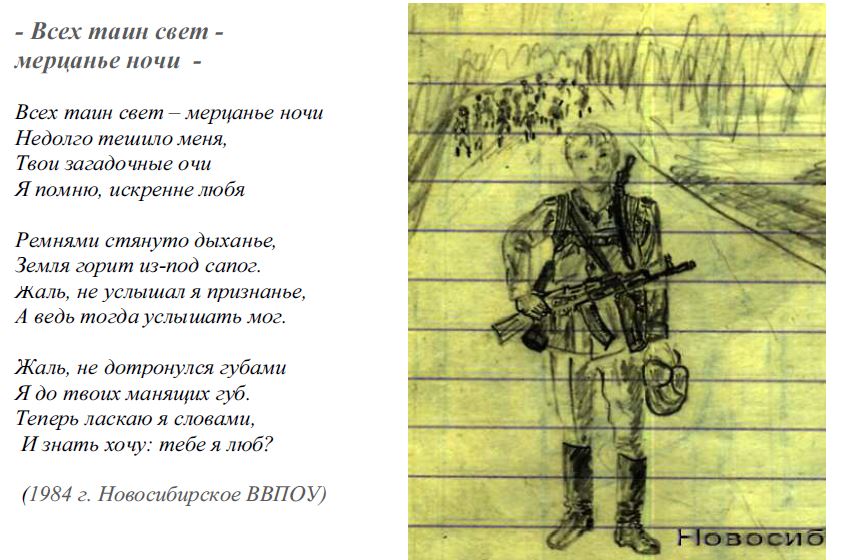 - Всех таин свет -
мерцанье ночи -
Всех таин свет – мерцанье ночи
Недолго тешило меня,
Твои загадочные очи
Я помню, искренне любя
Ремнями стянуто дыханье,
Земля горит из-под сапог.
Жаль, не услышал я признанье,
А ведь тогда услышать мог.
Жаль, не дотронулся губами
Я до твоих манящих губ.
Теперь ласкаю я словами,
И знать хочу: тебе я люб?
(1984 г. Новосибирское ВВПОУ)
Новосиб